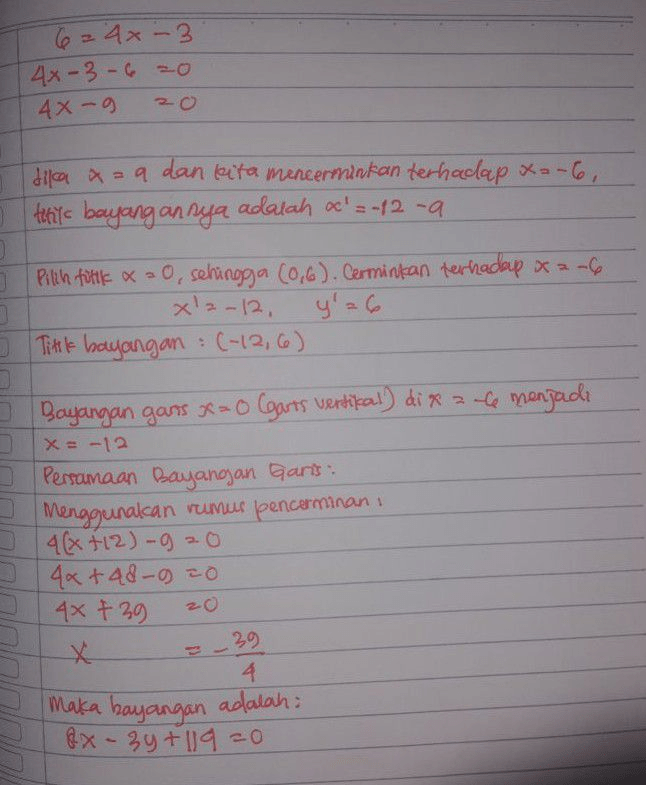 6 = 4x - 3
4x - 3 - 6 = 0
4x - 9 = 0
Jika x = a dan kita mencerminkan terhadap x = -6,
titik bayangannya adalah x' = -12 - a
Pilih titik x = 0, sehingga (0,6). Cerminkan terhadap x = -6
x' = -12, y' = 6
Titik bayangan : (-12, 6)
Bayangan garis x = 0 (garis vertikal) di x = -6 menjadi
x = -12
Persamaan Bayangan Garis :
Menggunakan rumus pencerminan :
4(x + 12) - 9 = 0
4x + 48 - 9 = 0
4x + 39 = 0
x = - 39/4
Maka bayangan adalah :
8x - 3y + 119 = 0